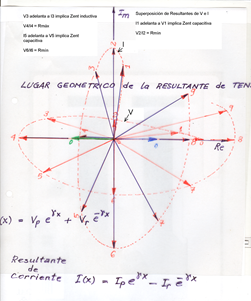 V3 adelante a I3 implica Zent inductiva
V4/I4 = Rmáx
I5 adelanta a V5 implica Zent
capacitiva
V6/I6 = Rmín
Superposición de Resultantes de V e I
I1 adelanta a V1 implica Zent capacitiva
V2/I2 = Rmín
Im
I
LUGAR GEOMETRICO de la RESULTANTE de TEN
V
Re
(x) = Vp e^γx + Vr e^-γx
Resultante
de
Corriente I(x) = Ip e^γx - Ir e^-γx